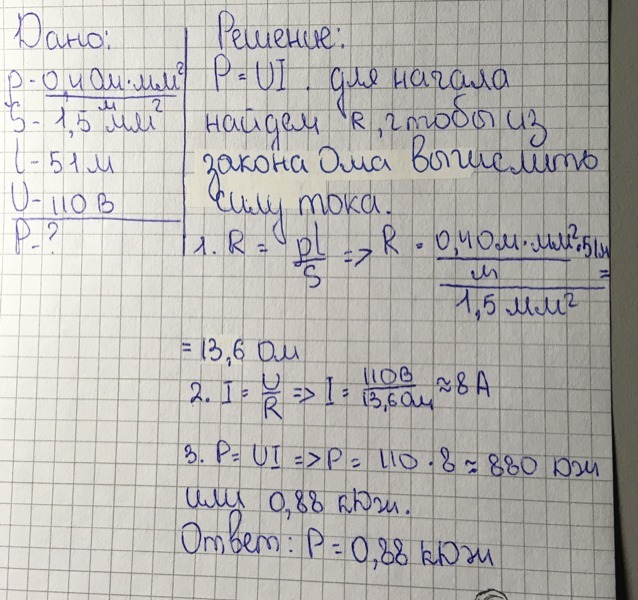 Дано:
ρ - 0,4 Ом·мм²
м
S - 1,5 мм²
l - 51 м
U - 110 В
P - ?
Решение:
P = UI . для начала
найдем R, чтобы из
закона Ома вычислить
силу тока.
1. R = ρl/S => R = 0,4 Ом·мм²/м · 51м / 1,5 мм² =
= 13,6 Ом
2. I = U/R => I = 110В/13,6 Ом ≈ 8 А
3. P = UI => P = 110 · 8 ≈ 880 Дж
или 0,88 кДж.
Ответ: P = 0,88 кДж